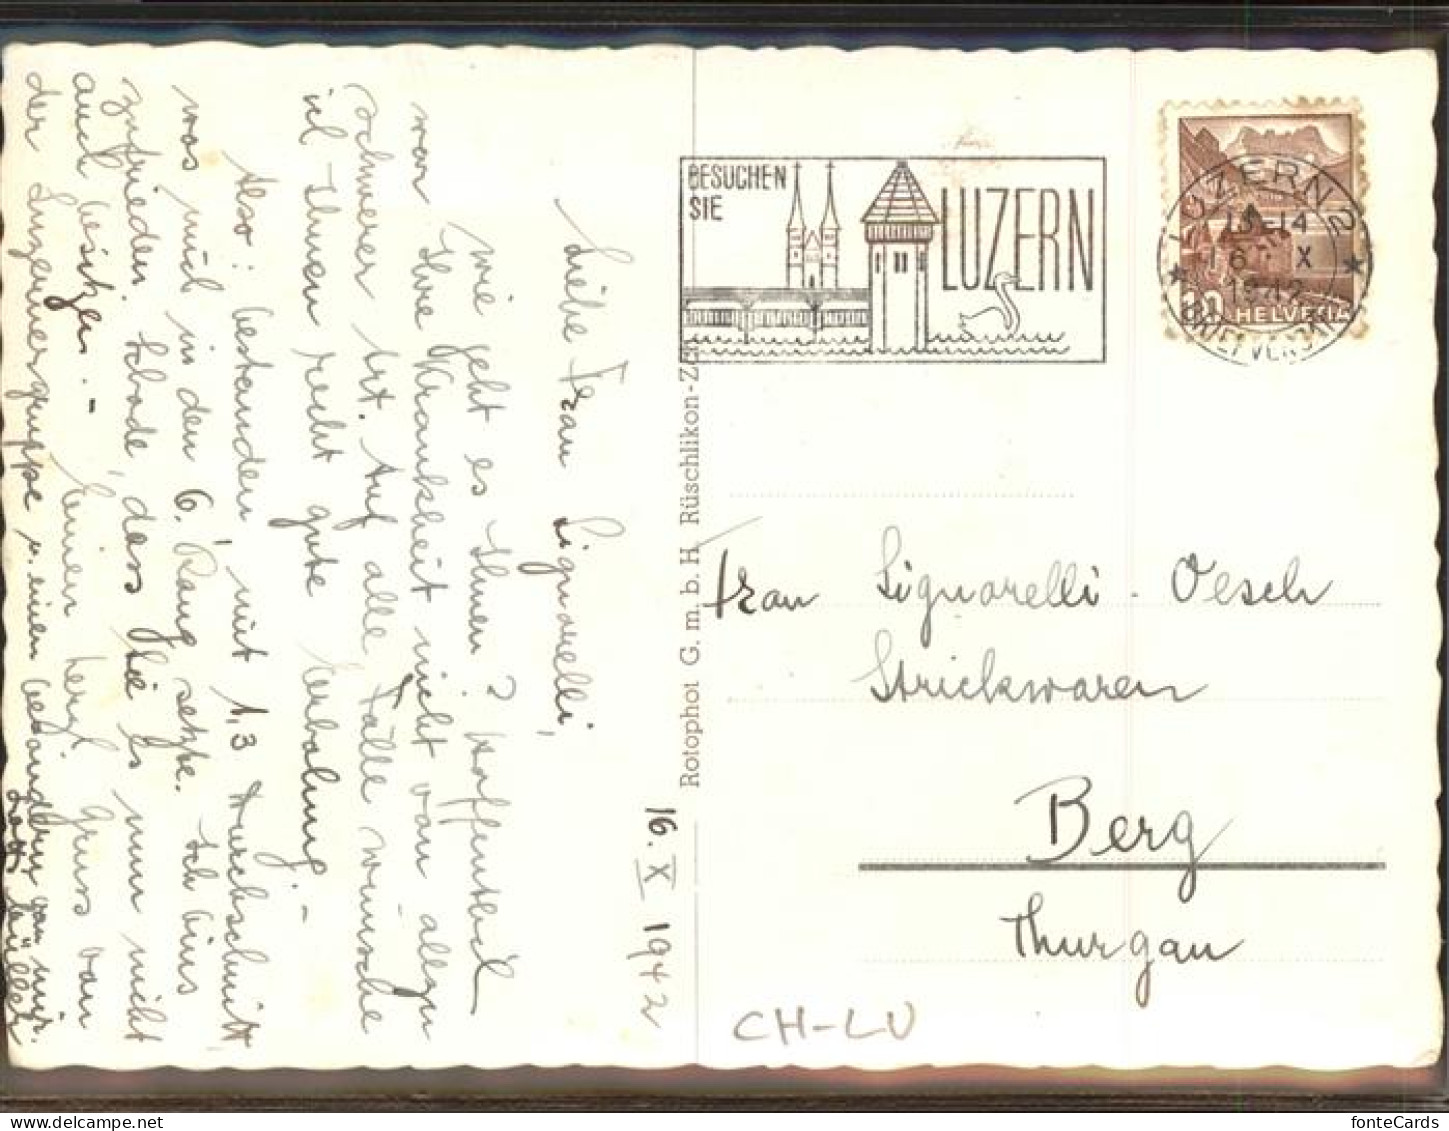 16. X 1942
Liebe Frau Signorelli,
wie geht es Ihnen? Hoffentlich
war Ihre Krankheit nicht von allzu
schwerer Art. Auf alle Fälle wünsche
ich Ihnen recht gute Erholung. -
Also: bestanden, mit 1,3 Durchschnitt
was mich in den 6. Rang setzte. Ich bins
zufrieden. Schade, dass Sie es nun nicht
auch besitzen. - Einen herzl. Gruss von
der Luzernergruppe u. einen besondern von mir.
Müller
Rotophot G. m. b. H. Rüschlikon-Z
BESUCHEN
SIE
LUZERN
LUZERN 2
13-14
16. X
1942
BRIEFVERSAND
10 HELVETIA
Frau Signorelli - Oesch
Strickwaren
Berg
Thurgau
CH-LU
fonteCards